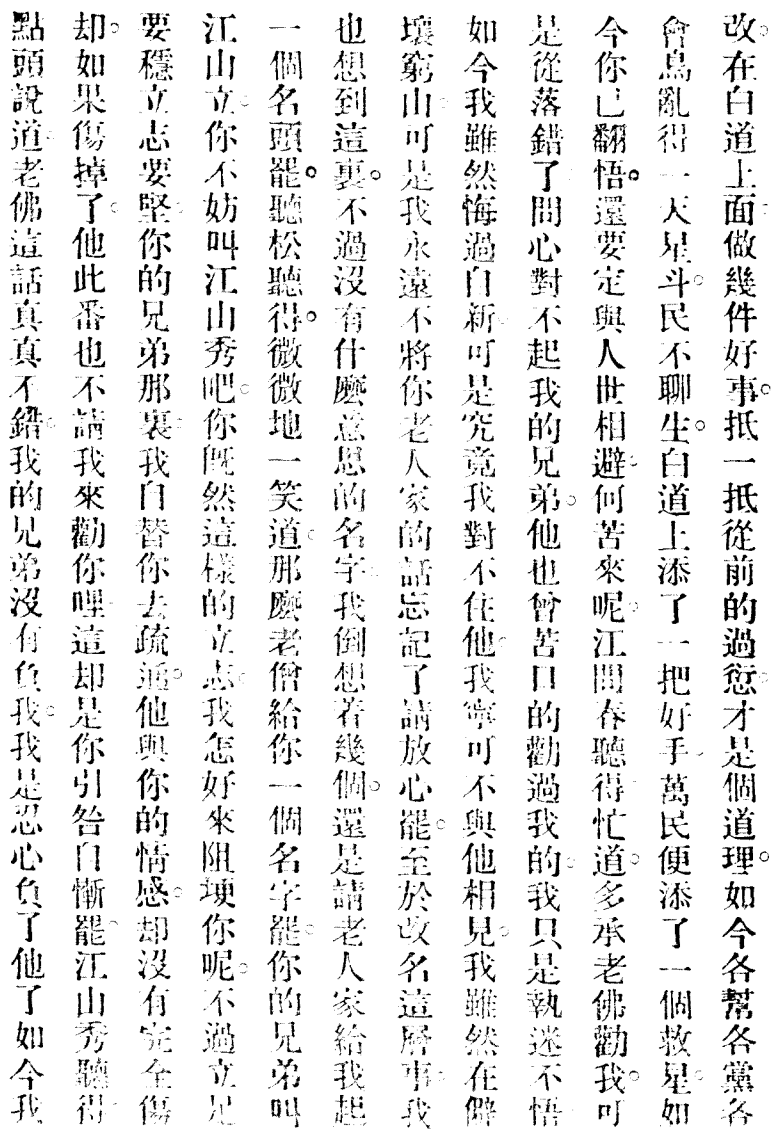 改。在白道上面。做幾件好事。抵一抵從前的過愆。才是個道理。如今各幫各黨各
會。烏亂得一天星斗。民不聊生。白道上添了一把好手。萬民便添了一個救星。如
今你已翻悟。還要定與人世相避。何苦來呢。江問春聽得忙道。多承老佛勸我。可
是從落錯了。問心對不起我的兄弟。他也曾苦口的勸過我的。我只是執迷不悟
如今我雖然悔過自新。可是究竟我對不住他。我寧可不與他相見。我雖然在僻
壤窮山。可是我永遠不將你老人家的話忘記了。請放心罷。至於改名這層事。我
也想到這裏。不過沒有什麼意思的名字。我倒想着幾個。還是請老人家給我起
一個名頭罷。聽松聽得。微微地一笑道。那麼老僧給你一個名字罷。你的兄弟叫
江山立。你不妨叫江山秀吧。你既然這樣的立志。我怎好來阻埂你呢。不過立足
要穩。立志要堅。你的兄弟那裏。我自替你去疏通。他與你的情感。却沒有完全傷
却。如果傷掉了。他此番也不請我來勸你哩。這却是你引咎自慚罷。江山秀聽得
點頭說道。老佛這話真真不錯。我的兄弟沒有負我。我是忍心負了他了。如今我